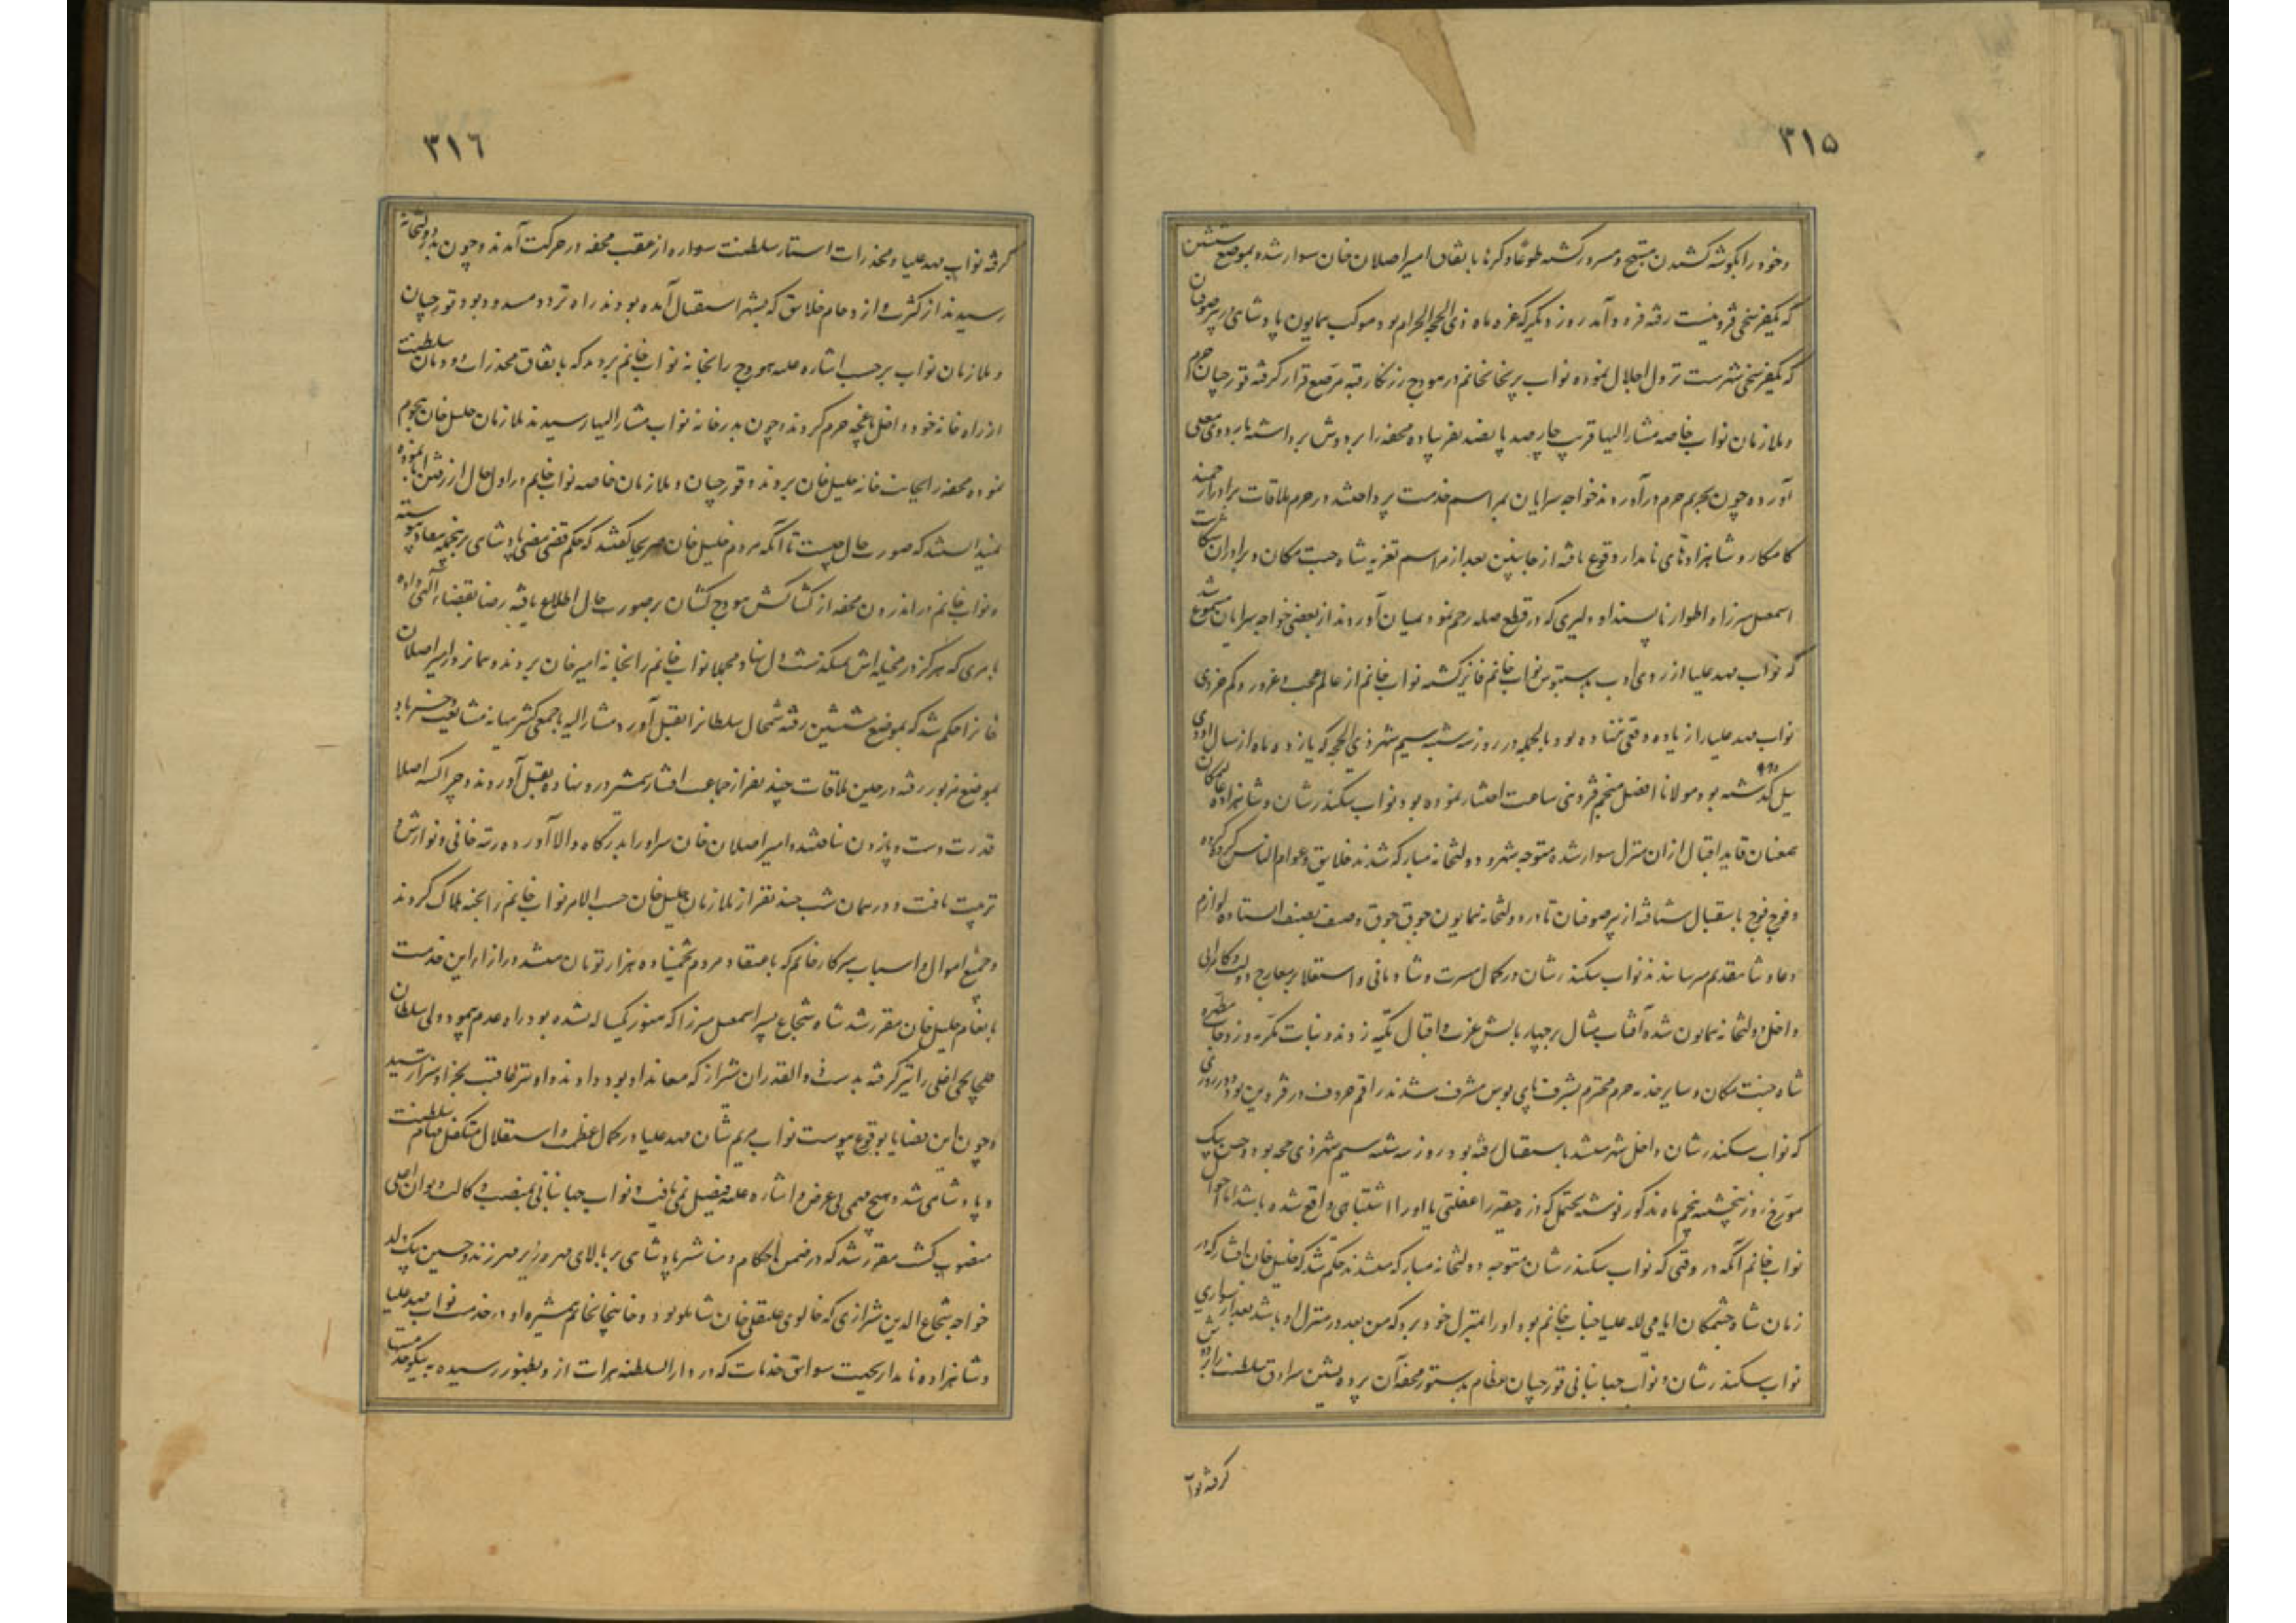 ۳۱۵
و خود را بگوشه کشیدن مبتهج و مسرور گشته طوعاً و کرهاً باتفاق امیر اصلان خان سوار شده بموضع ششین
که یکفرسخی قزوینست رفته فرود آمد روز دیگر که غره ماه ذی الحجه الحرام بود موکب همایون پادشاهی در پیرصوفیان
که یکفرسخی شهرست نزول اجلال نموده نواب پریخانخانم در هودج زرنگار قبه مرصع قرار گرفته قورچیان حرم
و ملازمان نواب خاصه مشار الیها قریب چارصد پانصد نفر پیاده محفه را بر دوش برداشته باردوی معلی
آورده چون بحریم حرم درآوردند خواجه سرایان بمراسم خدمت پرداختند در حرم ملاقات برادر ارجمند
کامکار و شاهزادهای نامدار وقوع یافته از جانبین بعد از مراسم تعزیه شاه جنت مکان و برادران
اسمعیل میرزا و اطوار ناپسند او و دلیری که در قطع صله رحم نمود بمیان آوردند از بعضی خواجه سرایان مسموع شد
که نواب مهد علیا از روی ادب بدستبوس نواب خانم فایز گشته نواب خانم از عالم عجب و غرور و کم خردی
نواب مهد علیا را زیاده وقعی ننهاده بود بالجمله در روز سه شنبه سیم شهر ذی الحجه که یازده ماه از سال اودی
ئیل گذشته بود مولانا افضل منجم قزوینی ساعت اختیار نموده بود نواب سکندر شان و شاهزاده عالمیان
همعنان قاید اقبال از ان منزل سوار شده متوجه شهر و دولتخانه مبارکه شدند خلایق و عوام الناس گروه گروه
و فوج فوج باستقبال شتافته از پیرصوفیان تا در دولتخانه همایون جوق جوق و صف بصف ایستاده لوازم
دعا و ثنا بتقدیم میرسانیدند نواب سکندر شان در کمال مسرت و شادمانی و استقلال بر معارج دولت و کامرانی
داخل دولتخانه همایون شده آفتاب مثال بر چهار بالش عزت و اقبال تکیه زدند و بنات مکرمه و زوجات مطهره
شاه جنت مکان و سایر خدمه حرم محترم بشرف پای بوس مشرف شدند راقم حروف در قزوین بود و در روزی
که نواب سکندر شان داخل شهر میشد باستقبال رفته بود روز سه شنبه سیم شهر ذی حجه بود و حسن بیک
مورخ روز پنجشنبه پنجم ماه مذکور نوشته یحتمل که ذره حقیر را غفلتی یا او را اشتباهی واقع شده باشد اما احوال
نواب خانم آنکه در وقتی که نواب سکندر شان متوجه دولتخانه مبارکه میشدند حکم شد که خلیل خان افشار که در
زمان شاه جنتمکان ایامی لله علیا جناب خانم بود او را بمنزل خود برد که من بعد در منزل او باشد بعد از سواری
نواب سکندر شان و نواب جهانبانی قورچیان عظام بدستور محفه آن پرده نشین سرادق سلطنت را بر دوش
گرفته نوا
۳۱٦
گرفته نواب مهد علیا و مخدرات استار سلطنت سواره از عقب محفه در حرکت آمدند و چون بدر دولتخانه
رسیدند از کثرت و ازدحام خلایق که بشهر استقبال آمده بودند راه تردد مسدود بود قورچیان
و ملازمان نواب بر حسب اشاره علیه هودج را بخانه نواب خانم بردند که باتفاق مخدرات دودمان سلطنت
از راه خانه خود داخل باغچه حرم گردند و چون بدر خانه نواب مشار الیها رسیدند ملازمان خلیل خان هجوم
نموده محفه را بجانب خانه خلیل خان بردند و قورچیان و ملازمان خاصه نواب خانم در اول حال از رفتن ابا نموده
نمیدانستند که صورت حال چیست تا آنکه مردم خلیل خان صریحا گفتند که حکم قضی مضی پادشاهی برینجمله بنفاد پیوسته
و نواب خانم در اندرون محفه از کشاکش هودج کشان بر صورت حال اطلاع یافته رضا بقضاء الهی داده
بامری که هرگز در مخیله اش نمیگذشت دل نهاد مجملا نواب خانم را بخانه امیر خان بردند و همانروز امیر اصلان
خانرا حکم شد که بموضع ششین رفته شمخال سلطانرا بقتل آورد مشار الیه با جمعی کثیر ببهانه مشایعت
بموضع مزبور رفته در حین ملاقات چند نفر از جماعت افشار شمشیر درو نهاده بقتل آوردند و چراکسه اصلا
قدرت دست و پا زدن نیافتند و امیر اصلان خان سر او را بدرگاه والا آورده رتبه خانی و نوازش و
تربیت یافت و در همان شب چند نفر از ملازمان خلیل خان حسب الامر نواب خانم را بخبه هلاک کردند
و جمیع اموال و اسباب سرکار خانم که باعتقاد مردم تخمینا ده هزار تومان میشد در ازاء این خدمت
بانعام خلیل خان مقرر شد شاه شجاع پسر اسمعیل میرزا که هنوز یکساله نشده بود راه عدم پیمود ولی سلطان
قلخانچی اغلی را نیز گرفته بدست ذوالقدران شیراز که معاند او بودند دادند و او نیز عاقبت بجزا و سزا رسید
و چون این قضایا بوقوع پیوست نواب مریم شان مهد علیا در کمال عظمت و استقلال متکفل مهام سلطنت
و پادشاهی شد و هیچ مهمی بی عرض و اشاره علیه فیصل نمی یافت و نواب جهانبانی بمنصب وکالت دیوان اعلی
منصوب گشت مقرر شد که در ضمن احکام و مناشیر پادشاهی بر بالای مهر وزیر مهر زند و حسین بیک ولد
خواجه شجاع الدین شیرازی که خالوی علیقلی خان شاملو بود و خانیجانخانم همشیره او در خدمت نواب مهد علیا
و شاهزاده نامدار بجهت سوابق خدمات که در دار السلطنه هرات ازو بظهور رسیده به نیکو خدمتی